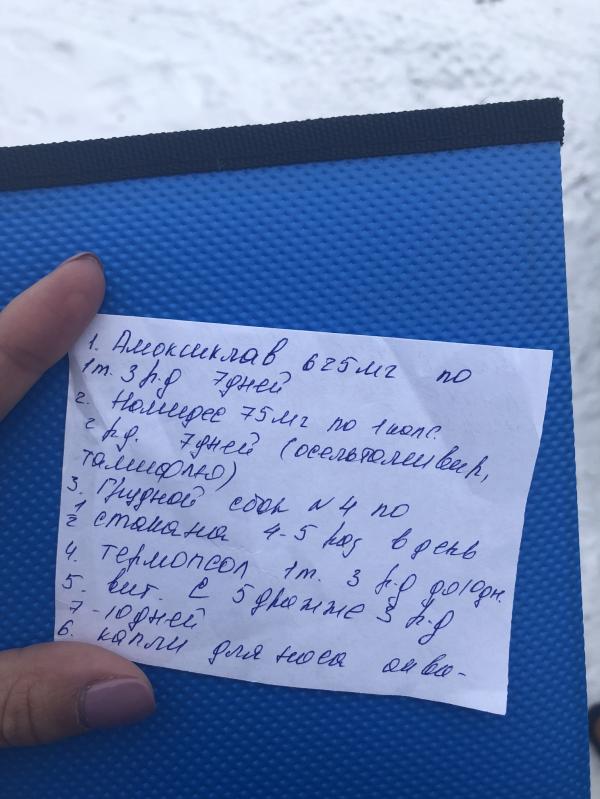 1. Амоксиклав 625мг по
1т. 3 р.д 7дней
2. Номидес 75мг по 1 капс.
2 р.д. 7дней (осельтамивир,
тамифлю)
3. Грудной сбор №4 по
1/2 стакана 4-5 раз в день
4. Термопсол 1т. 3 р.д до 10дн.
5. вит. С 5 драже 3 р.д
7-10дней
6. капли для носа аква-